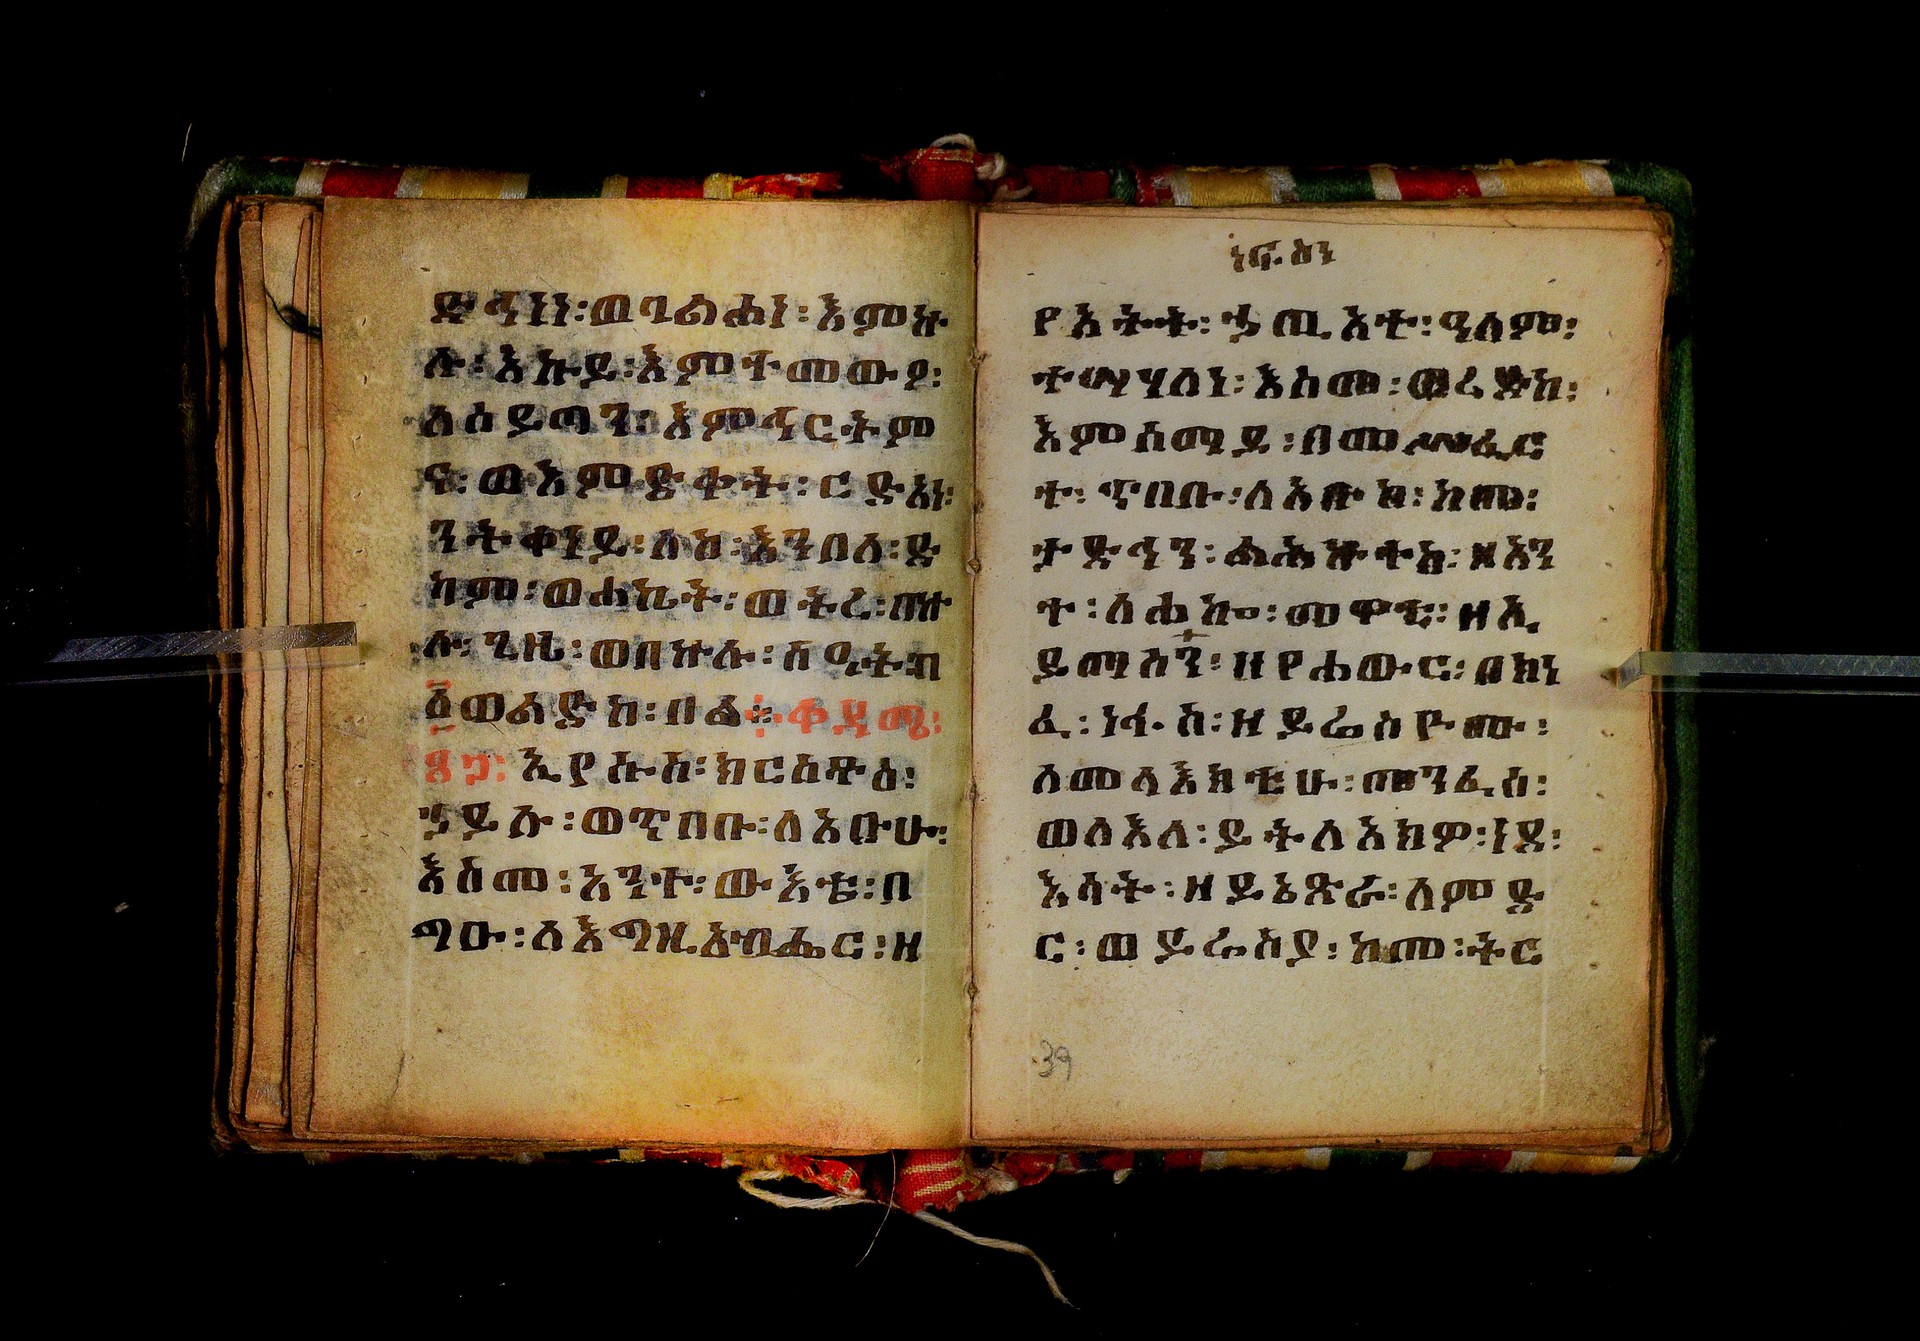 ድኅነነ፡ወባልሐነ፡እምኵ
ሉ፡እኩይ፡እምተመውዖ፡
ለሰይጣን፡እምኅርትም
ና፡ወእምድቀት፡ርድአነ፡
ንትቀነይ፡ለከ፡እንበለ፡ድ
ካም፡ወሐኬት፡ወትረ፡በኵ
ሉ፡ጊዜ፡ወበኵሉ፡ሰዓት፡በ
፩ወልድከ፡በል፡ቀዳሜ፡
ኢየሱስ፡ክርስቶስ፡
ኃይሉ፡ወጥበቡ፡ለአቡሁ፡
እስመ፡አንተ፡ውእቱ፡በ
ግዑ፡ለእግዚአብሔር፡ዘ
ነፍስን
የአትት፡ኃጢአተ፡ዓለም፡
ተሣሃለነ፡እስመ፡ወረድከ፡
እምሰማይ፡በመሥፈር
ት፡ጥበቡ፡ለአቡከ፡ከመ፡
ታድኅን፡ልሕኵተከ፡ዘእን
ተ፡ለሐኮ፡መዋቲ፡ዘኢ
ይማስን፡ዘየሐውር፡በክነ
ፈ፡ነፋስ፡ዘይሬስዮሙ፡
ለመላእክቲሁ፡መንፈስ፡
ወለእለ፡ይትለአክዎ፡ነደ፡
እሳት፡ዘይኔጽራ፡ለምድ
ር፡ወይሬስያ፡ከመ፡ትር
39